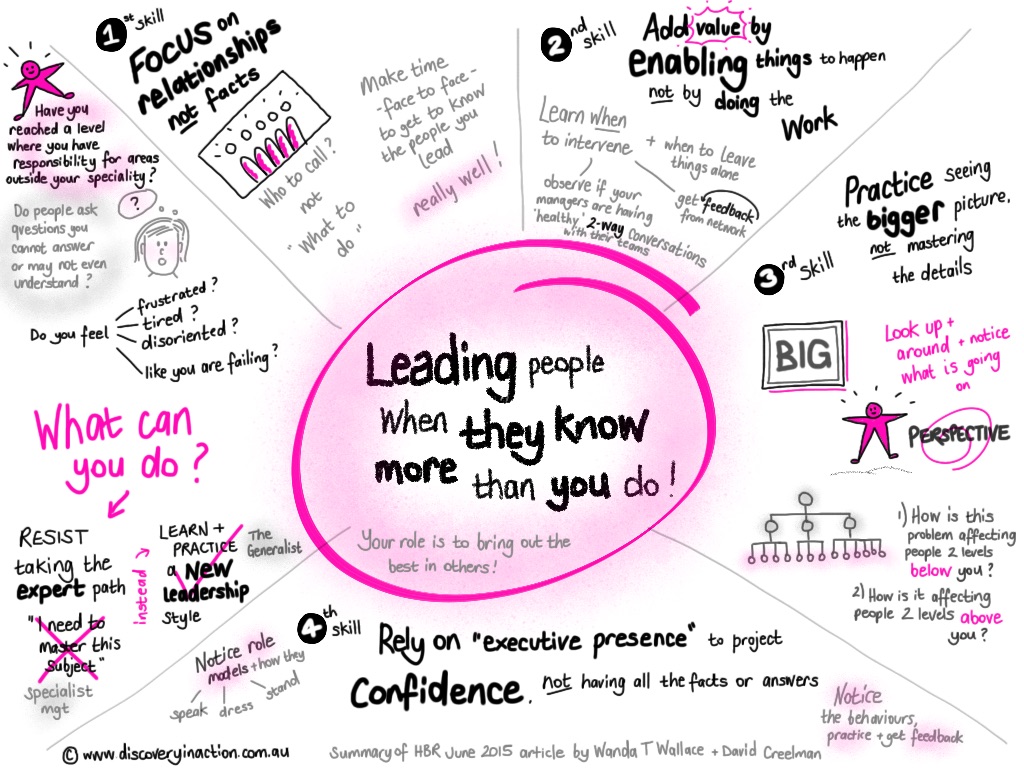 1st skill
Focus on
relationships
not facts
Who to call?
not
"What to
do"
Make time
- face to face -
to get to know
the people you
lead
really well!
2nd skill
Add value by
enabling things to happen
not by doing the
Work
Learn when
to intervene
+ when to leave
things alone
observe if your
managers are having
'healthy' 2-way conversations
with their teams
get "feedback"
from network
3rd skill
Practice seeing
the bigger picture.
not mastering
the details
BIG
Look up +
around + notice
what is going
on
PERSPECTIVE
1) How is this
problem affecting
people 2 levels
below you?
2) How is it affecting
people 2 levels above
you?
Have you
reached a level
where you have
responsibility for areas
outside your speciality?
?
Do people ask
questions you
cannot answer
or may not even
understand?
Do you feel
frustrated?
tired?
disoriented?
like you are failing?
What can
you do?
RESIST
taking the
expert path
"I need to
Master this
Subject"
Specialist
mgt
instead
LEARN +
PRACTICE
a New
leadership
style
The
Generalist
Leading people
When they know
more than you do!
Your role is to bring out the
best in others!
4th skill
Rely on "executive presence" to project
Confidence. not having all the facts or answers
Notice role
models + how they
speak dress stand
Notice
the behaviours,
practice + get feedback
© www.discoveryinaction.com.au
Summary of HBR June 2015 article by Wanda T Wallace + David Creelman